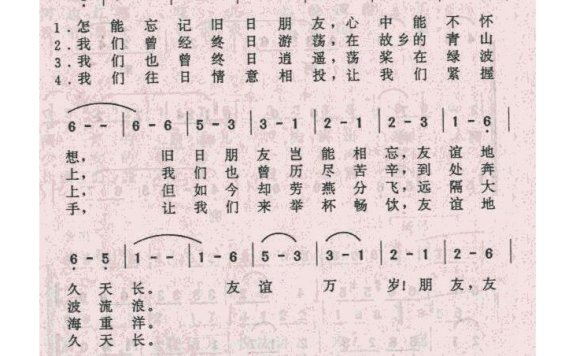 1.怎能忘记旧日朋友,心中能不怀
2.我们曾经终日游荡,在故乡的青山
3.我们也曾终日逍遥,荡桨在绿波
4.我们往日情意相投,让我们紧握
6 - - | 6 - 6 | 5 - 3 | 3 - 1 | 2 - 1 | 2 - 3 | 1 - 6 |
想, 旧日朋友岂能相忘,友谊地
上, 我们也曾历尽苦辛,到处奔
上, 但如今却劳燕分飞,远隔大
手, 让我们来举杯畅饮,友谊地
6 - 5 | 1 - - | 1 - 6 | 5 - 3 | 3 - 1 | 2 - 1 | 2 - 6
久天长。 友谊万岁!朋友,友
波流浪。
海重洋。
久天长。